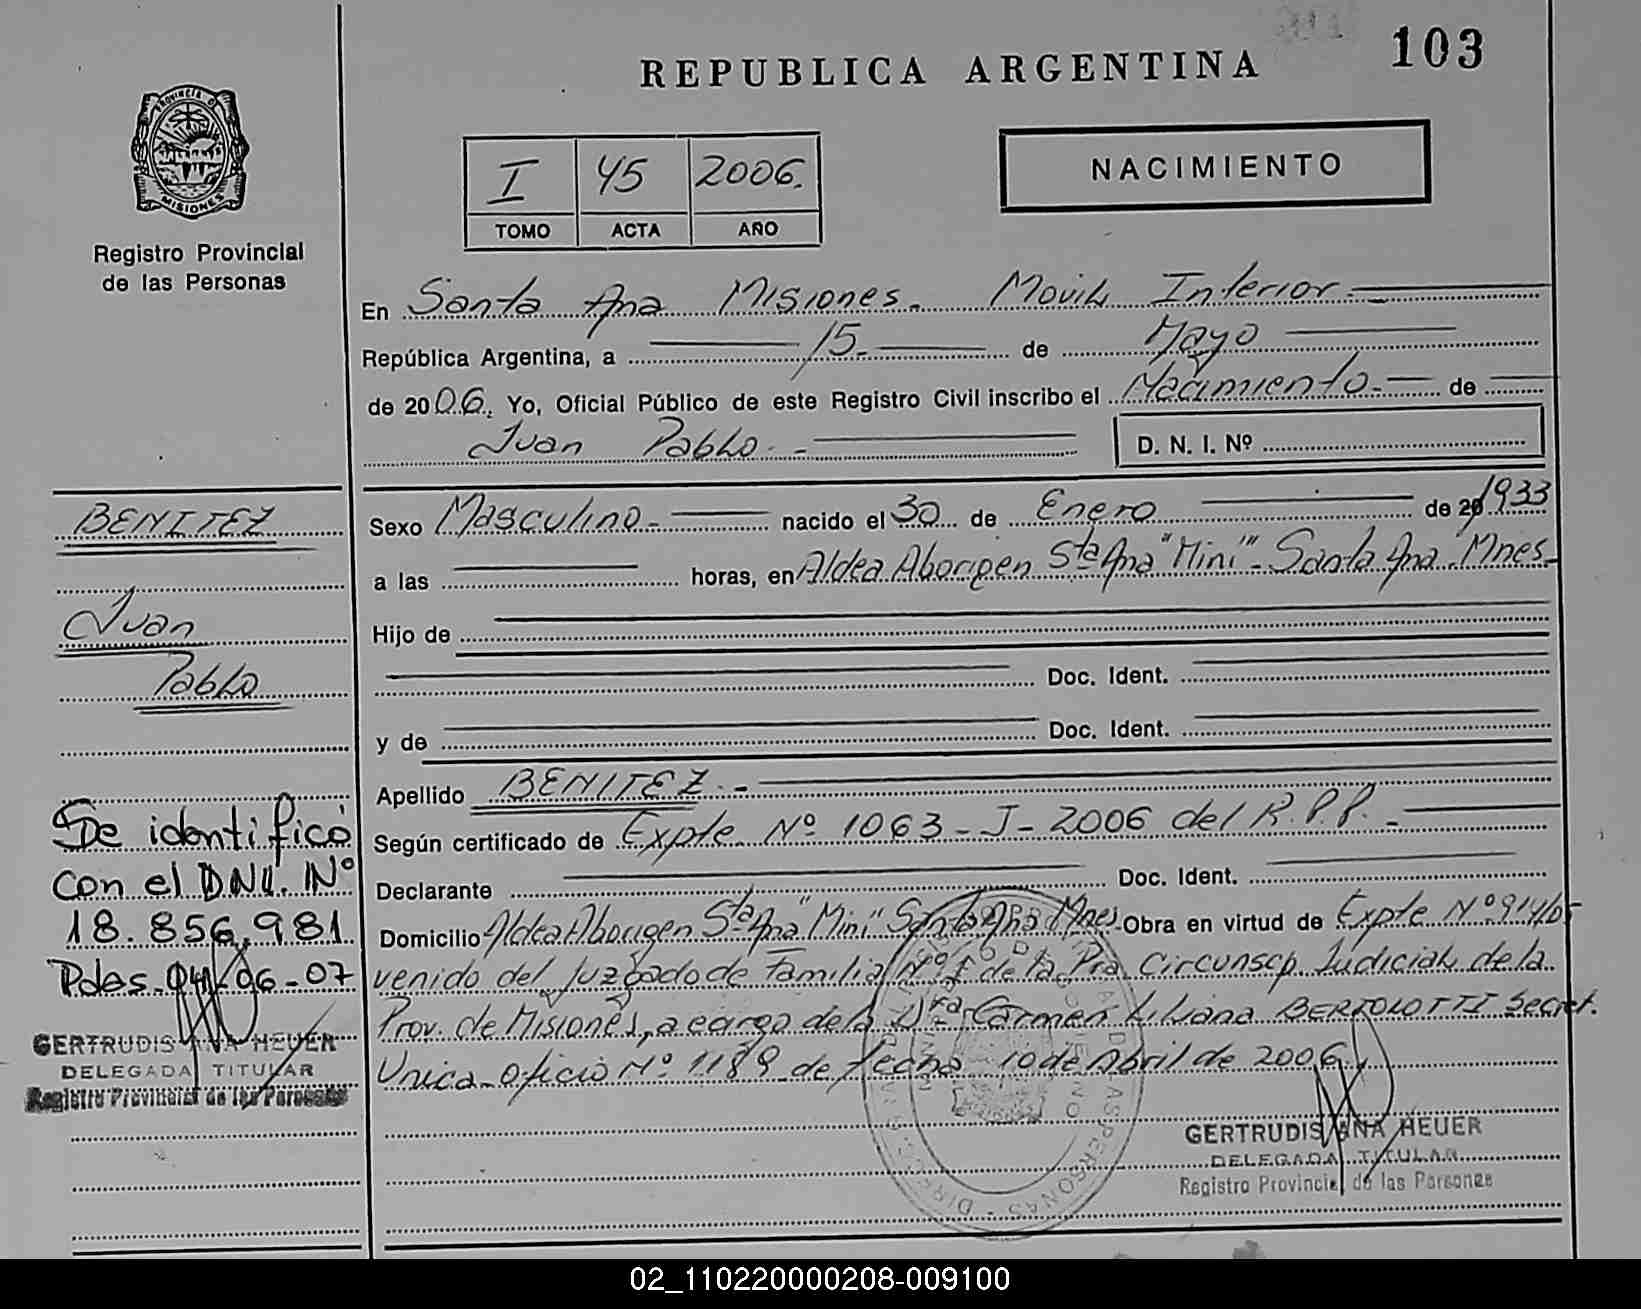 103
REPUBLICA ARGENTINA
PROVINCIA D
MISIONES
Registro Provincial
de las Personas
I 45 2006.
TOMO ACTA AÑO
NACIMIENTO
En Santa Ana Misiones. Movil Interior.
República Argentina, a 15 de Mayo
de 2006. Yo, Oficial Público de este Registro Civil inscribo el Nacimiento de
Juan Pablo.-
D. N. I. Nº
BENITEZ
Juan
Pablo
Sexo Masculino nacido el 30 de Enero de 20 1933
a las horas, en Aldea Aborigen Sta Ana "Mini"- Santa Ana Mnes-
Hijo de
Doc. Ident.
y de Doc. Ident.
Apellido BENITEZ.-
Según certificado de Expte Nº 1063-J-2006 del R.P.P.-
Declarante Doc. Ident.
Domicilio Aldea Aborigen Sta Ana "Mini" Santa Ana Mnes. Obra en virtud de Expte Nº 914/05
venido del Juzgado de Familia Nº 1 de la Pra Circunscp Judicial de la
Prov. de Misiones, a cargo de la Dra Carmen Liliana BERTOLOTTI Secret.
Unica. Oficio Nº 1189 de fecha 10 de Abril de 2006.
Se identificó
con el D.N.I. Nº
18.856.981.
Pdas. 04/06-07
GERTRUDIS ANA HEUER
DELEGADA TITULAR
Registro Provincial de las Personas
GERTRUDIS ANA HEUER
DELEGADA TITULAR
Registro Provincial de las Personas
02_110220000208-009100